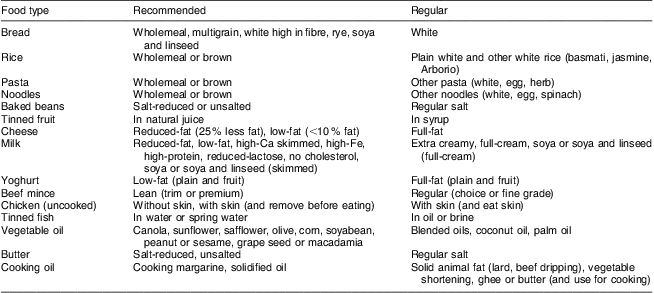 Food type Recommended Regular
Bread Wholemeal, multigrain, white high in fibre, rye, soya White
and linseed
Rice Wholemeal or brown Plain white and other white rice (basmati, jasmine,
Arborio)
Pasta Wholemeal or brown Other pasta (white, egg, herb)
Noodles Wholemeal or brown Other noodles (white, egg, spinach)
Baked beans Salt-reduced or unsalted Regular salt
Tinned fruit In natural juice In syrup
Cheese Reduced-fat (25 % less fat), low-fat (<10 % fat) Full-fat
Milk Reduced-fat, low-fat, high-Ca skimmed, high-Fe, Extra creamy, full-cream, soya or soya and linseed
high-protein, reduced-lactose, no cholesterol, (full-cream)
soya or soya and linseed (skimmed)
Yoghurt Low-fat (plain and fruit) Full-fat (plain and fruit)
Beef mince Lean (trim or premium) Regular (choice or fine grade)
Chicken (uncooked) Without skin, with skin (and remove before eating) With skin (and eat skin)
Tinned fish In water or spring water In oil or brine
Vegetable oil Canola, sunflower, safflower, olive, corn, soyabean, Blended oils, coconut oil, palm oil
peanut or sesame, grape seed or macadamia
Butter Salt-reduced, unsalted Regular salt
Cooking oil Cooking margarine, solidified oil Solid animal fat (lard, beef dripping), vegetable
shortening, ghee or butter (and use for cooking)